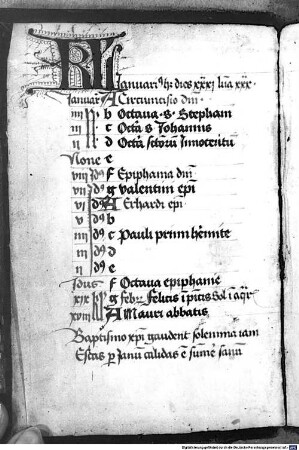 KL Januari9 hz dies xxxi lūa xxx
Januar9 A Circumcisio dm̄
iiij b Octaua s Stephani
iij c Octā s Johannis
ij d Octā sctōrū Innocētū
None e
viij Jd9 f Epiphania dnī
vij Jd9 g valentini epī
vj Jd9 A Erhardi epī
v d9 b
iiij d9 c Pauli primi hēmite
iij d9 d
ij d9 e
Jdus f Octaua epiphanie
xix g febr9 Felicis
xviij A Mauri abbatis
Baptismo xpī gaudent solemnia iam
Escas p Janū calidas ē sumē sanū